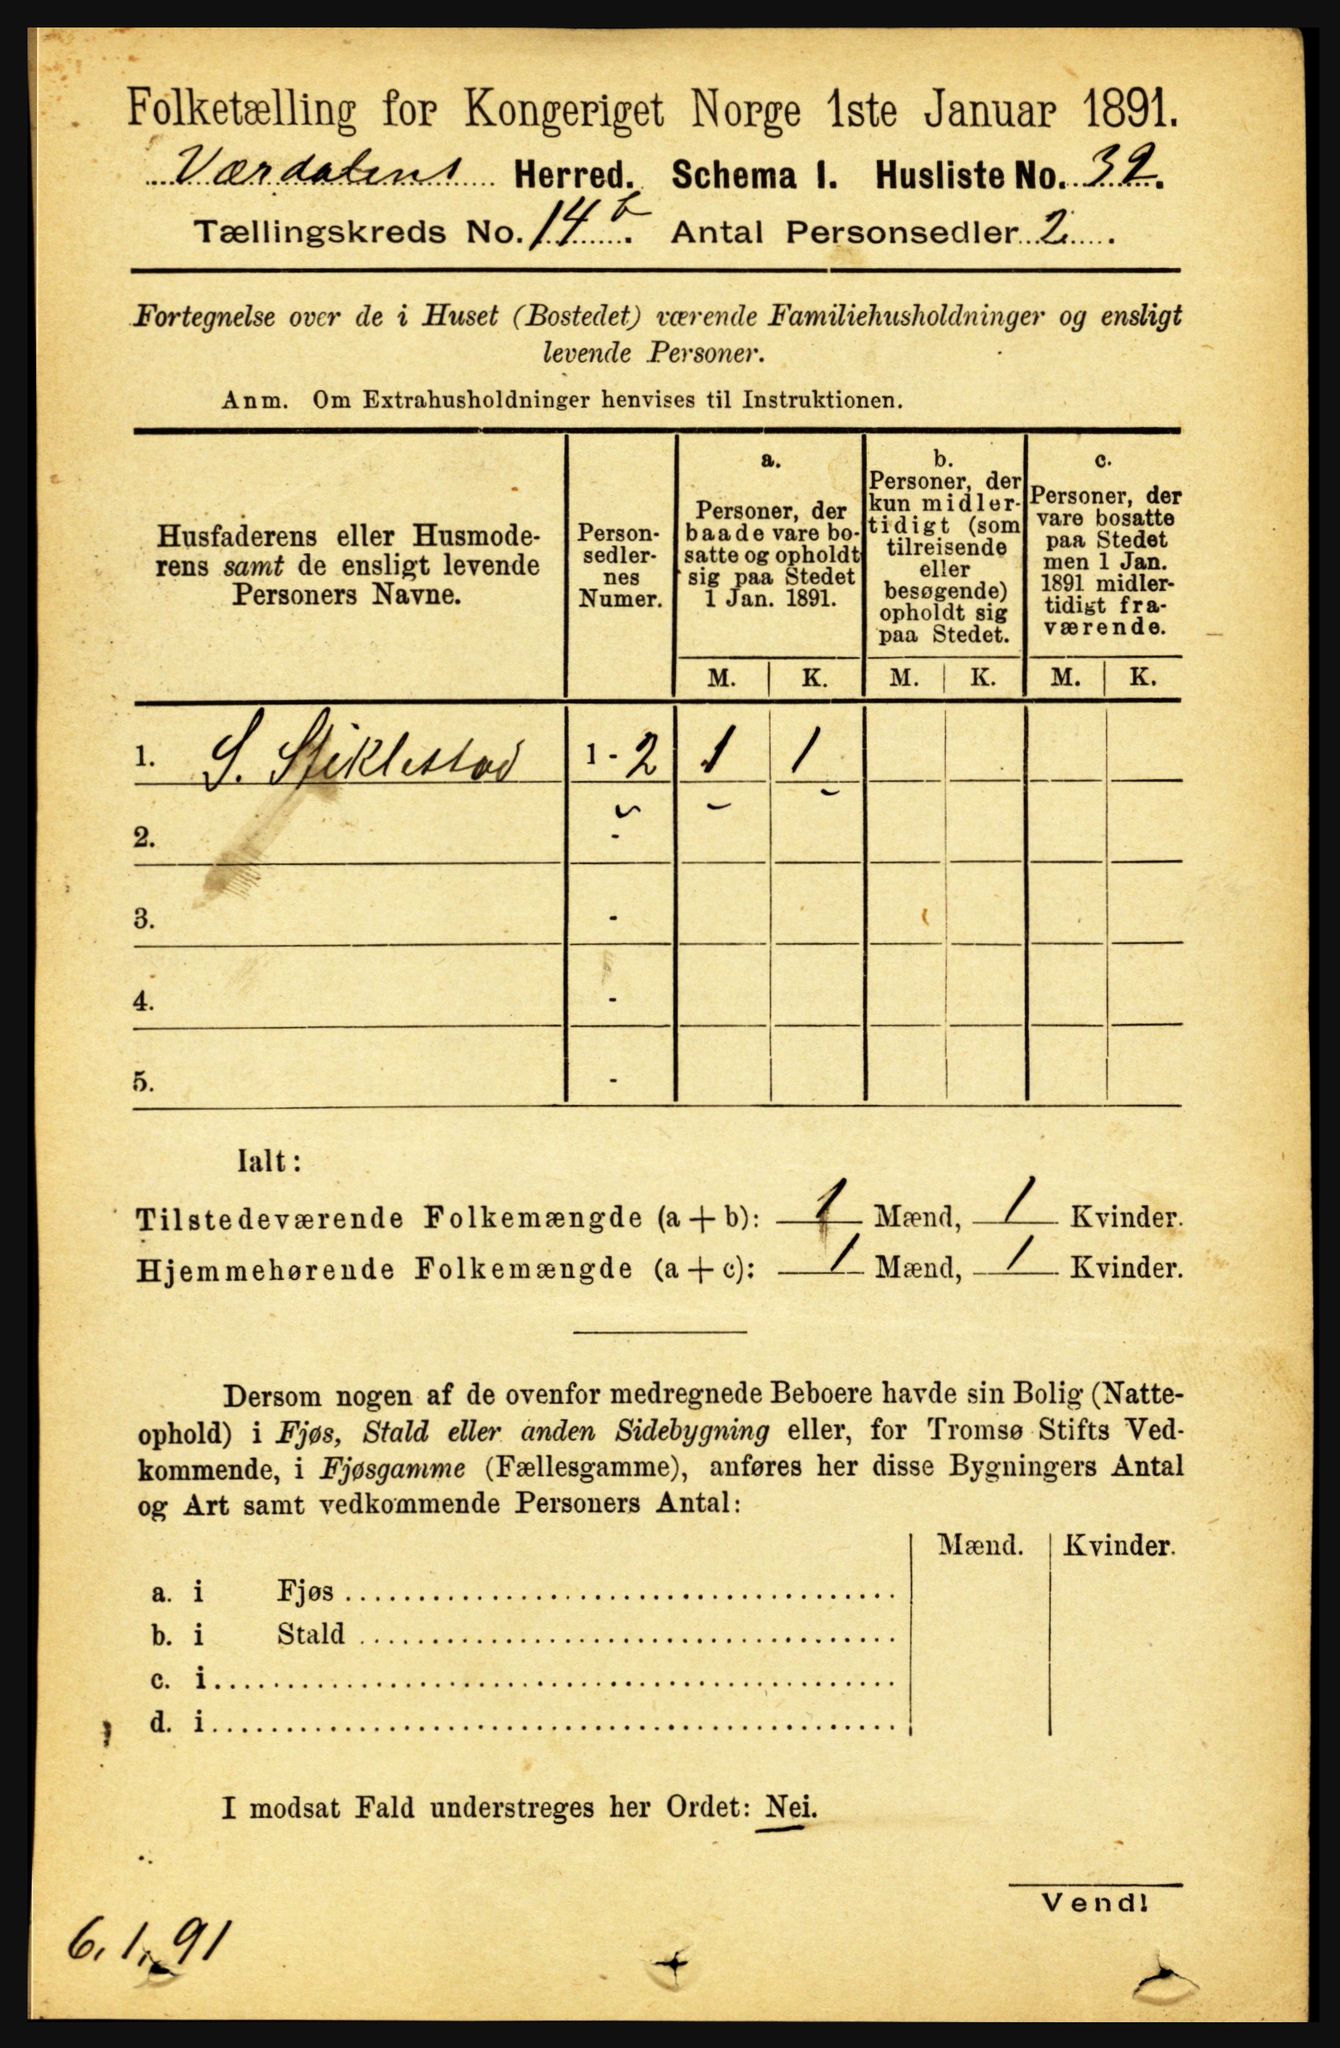 Folketælling for Kongeriget Norge 1ste Januar 1891.
Værdalens Herred. Schema I. Husliste No. 39.
Tællingskreds No. 14 b. Antal Personsedler 2.
Fortegnelse over de i Huset (Bostedet) værende Familiehusholdninger og ensligt
levende Personer.
Anm. Om Extrahusholdninger henvises til Instruktionen.
Husfaderens eller Husmode-
rens samt de ensligt levende
Personers Navne.
Person-
sedler-
nes
Numer.
a.
Personer, der
baade vare bo-
satte og opholdt
sig paa Stedet
1 Jan. 1891.
b.
Personer, der
kun midler-
tidigt (som
tilreisende
eller
besøgende)
opholdt sig
paa Stedet.
c.
Personer, der
vare bosatte
paa Stedet
men 1 Jan.
1891 midler-
tidigt fra-
værende.
M. K. M. K. M. K.
1. S. Stiklestad 1 - 2 1 1
2. -
3. -
4. -
5. -
Ialt:
Tilstedeværende Folkemængde (a + b): 1 Mænd, 1 Kvinder.
Hjemmehørende Folkemængde (a + c): 1 Mænd, 1 Kvinder.
Dersom nogen af de ovenfor medregnede Beboere havde sin Bolig (Natte-
ophold) i Fjøs, Stald eller anden Sidebygning eller, for Tromsø Stifts Ved-
kommende, i Fjøsgamme (Fællesgamme), anføres her disse Bygningers Antal
og Art samt vedkommende Personers Antal:
Mænd. Kvinder.
a. i Fjøs
b. i Stald
c. i
d. i
I modsat Fald understreges her Ordet: Nei.
Vend!
6. 1. 91